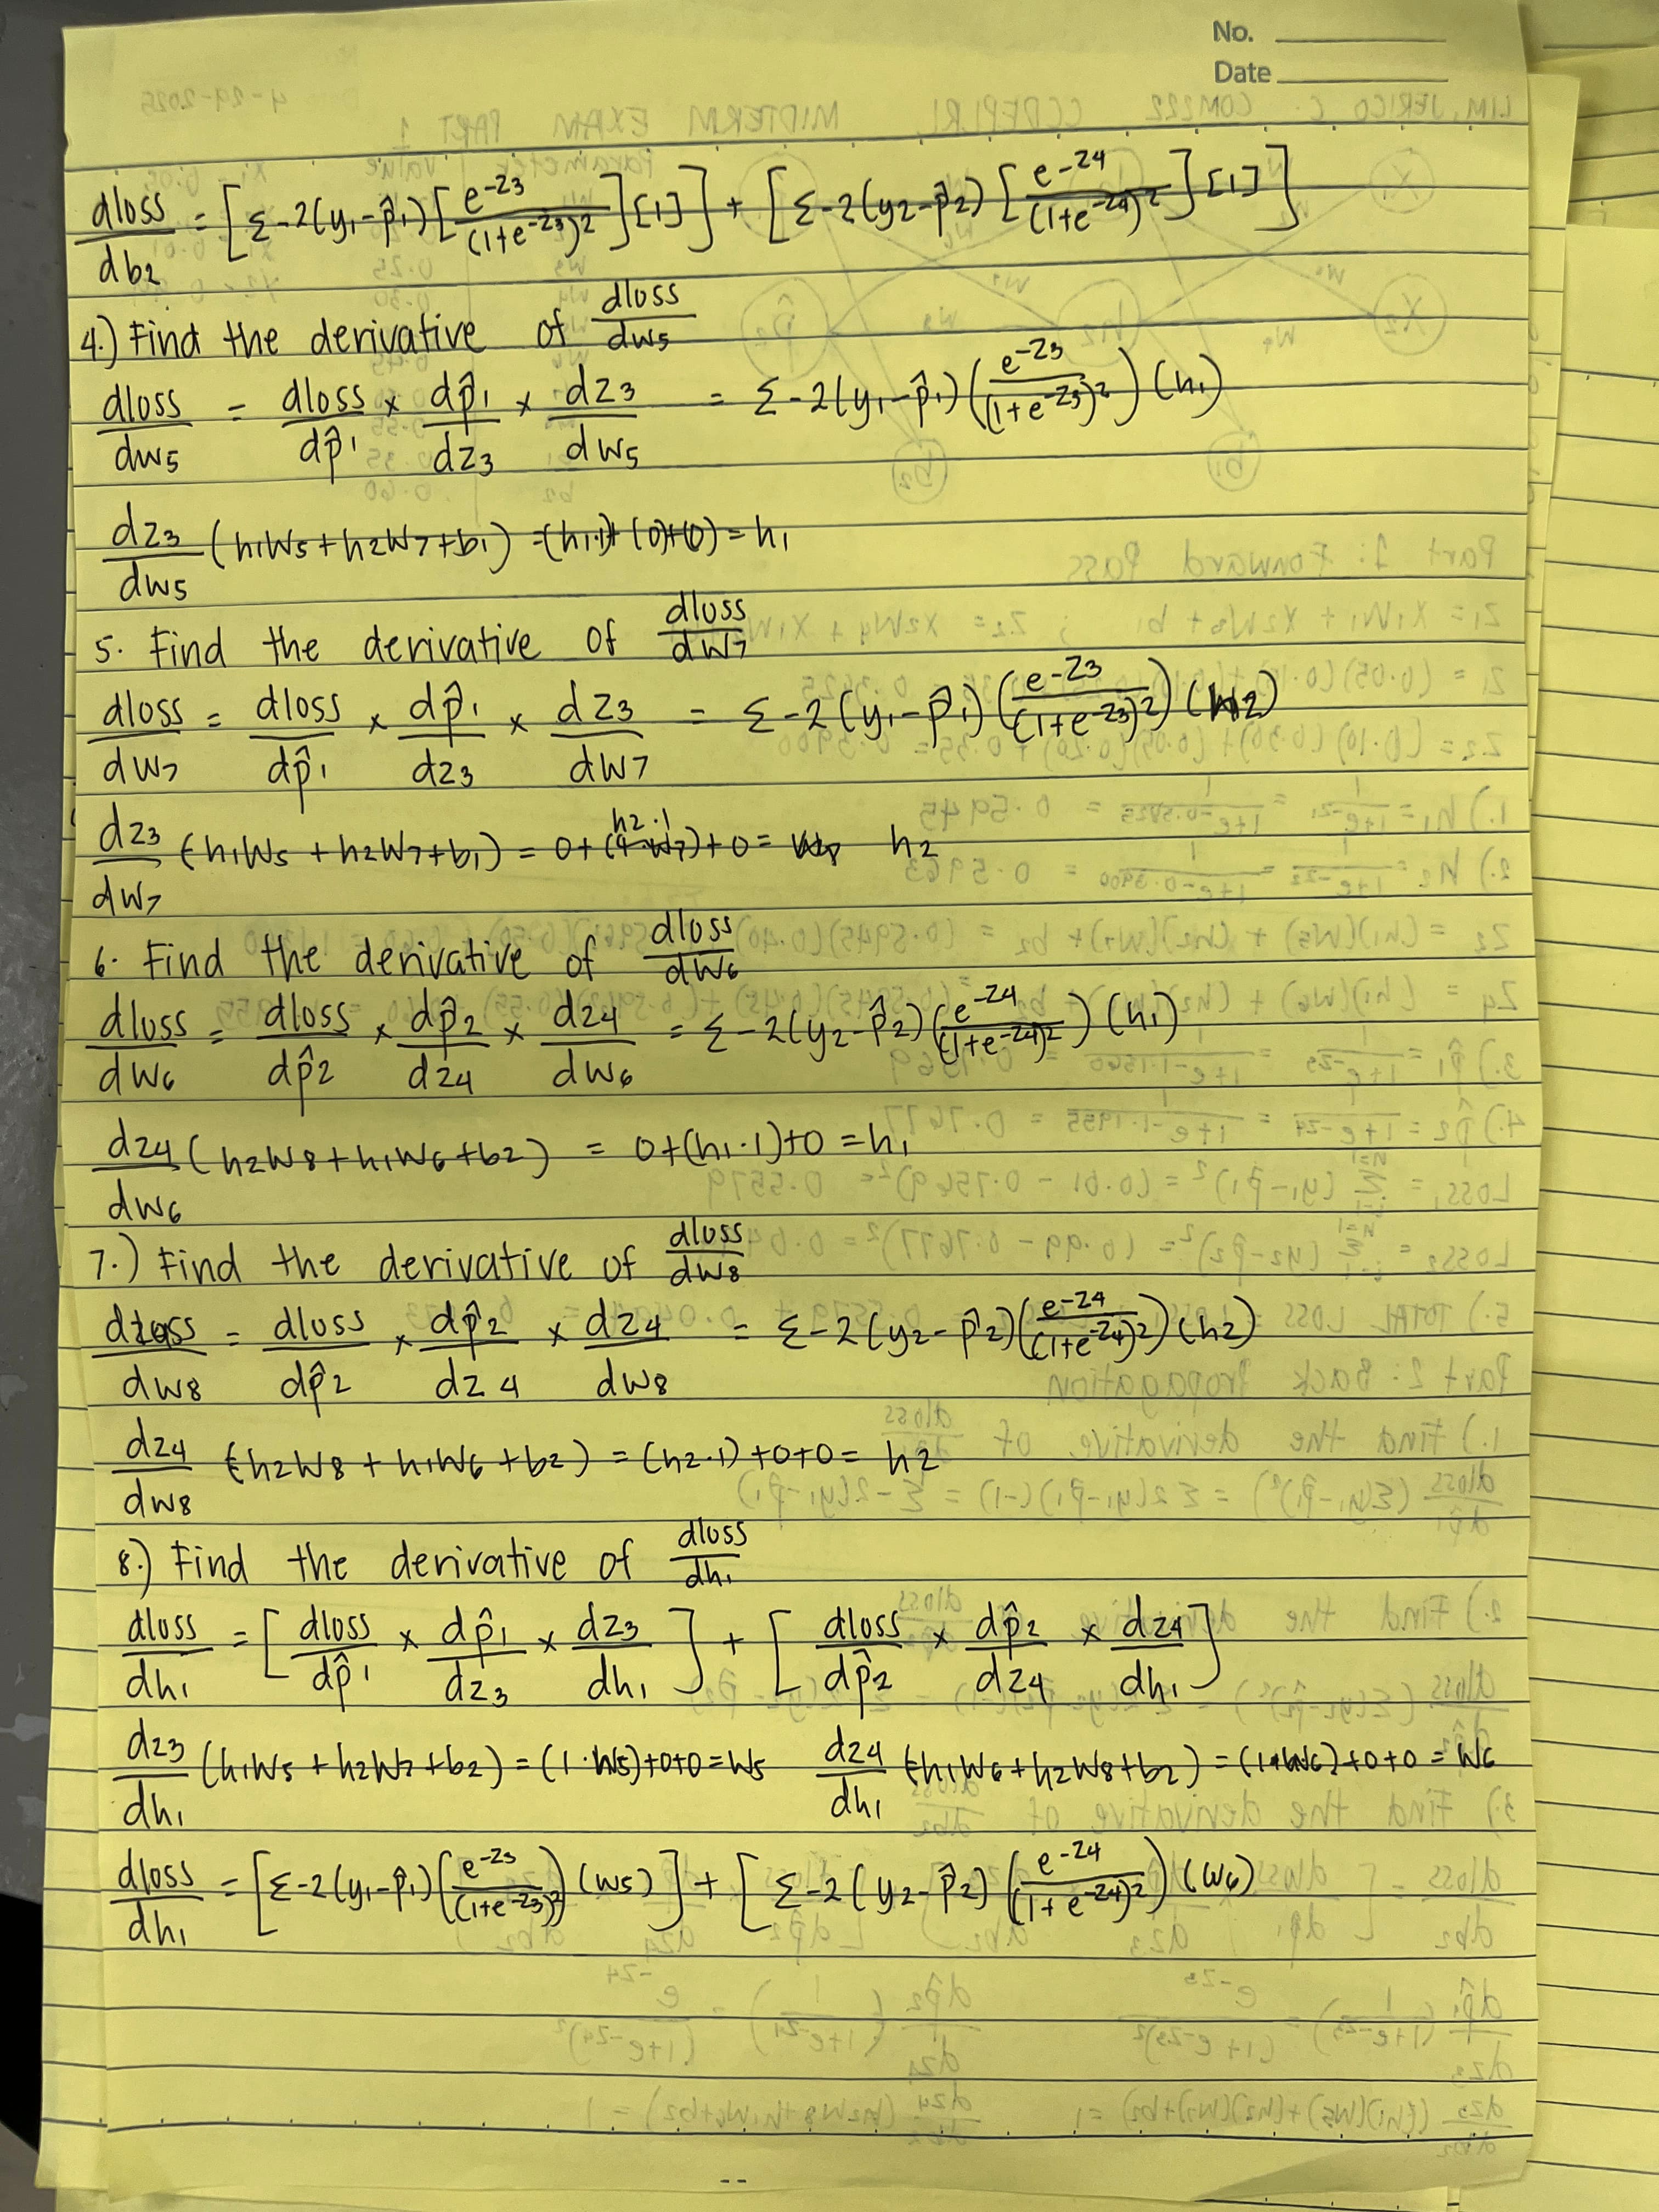 No.
Date
dloss/db2 = [Σ-2(y1-p̂1)[e^-z3/(1+e^-z3)^2][1]] + [Σ-2(y2-p̂2)[e^-z4/(1+e^-z4)^2][1]]
4.) Find the derivative of dloss/dw5
dloss/dw5 = dloss/dp̂1 × dp̂1/dz3 × dz3/dw5 = Σ-2(y1-p̂1)(e^-z3/(1+e^-z3)^2)(h1)
dz3/dw5 (h1w5+h2w7+b1) = (h1·1)+(0)+(0) = h1
5. Find the derivative of dloss/dw7
dloss/dw7 = dloss/dp̂1 × dp̂1/dz3 × dz3/dw7 = Σ-2(y1-p̂1)(e^-z3/(1+e^-z3)^2)(h2)
dz3/dw7 (h1w5+h2w7+b1) = 0+(h2·1)+0 = h2
6. Find the derivative of dloss/dw6
dloss/dw6 = dloss/dp̂2 × dp̂2/dz4 × dz4/dw6 = Σ-2(y2-p̂2)(e^-z4/(1+e^-z4)^2)(h1)
dz4/dw6 (h2w8+h1w6+b2) = 0+(h1·1)+0 = h1
7.) Find the derivative of dloss/dw8
dloss/dw8 = dloss/dp̂2 × dp̂2/dz4 × dz4/dw8 = Σ-2(y2-p̂2)(e^-z4/(1+e^-z4)^2)(h2)
dz4/dw8 (h2w8+h1w6+b2) = (h2·1)+0+0 = h2
8.) Find the derivative of dloss/dh1
dloss/dh1 = [dloss/dp̂1 × dp̂1/dz3 × dz3/dh1] + [dloss/dp̂2 × dp̂2/dz4 × dz4/dh1]
dz3/dh1 (h1w5+h2w7+b2) = (1·w5)+0+0 = w5 dz4/dh1 (h1w6+h2w8+b2) = (1·w6)+0+0 = w6
dloss/dh1 = [Σ-2(y1-p̂1)(e^-z3/(1+e^-z3)^2)(w5)] + [Σ-2(y2-p̂2)(e^-z4/(1+e^-z4)^2)(w6)